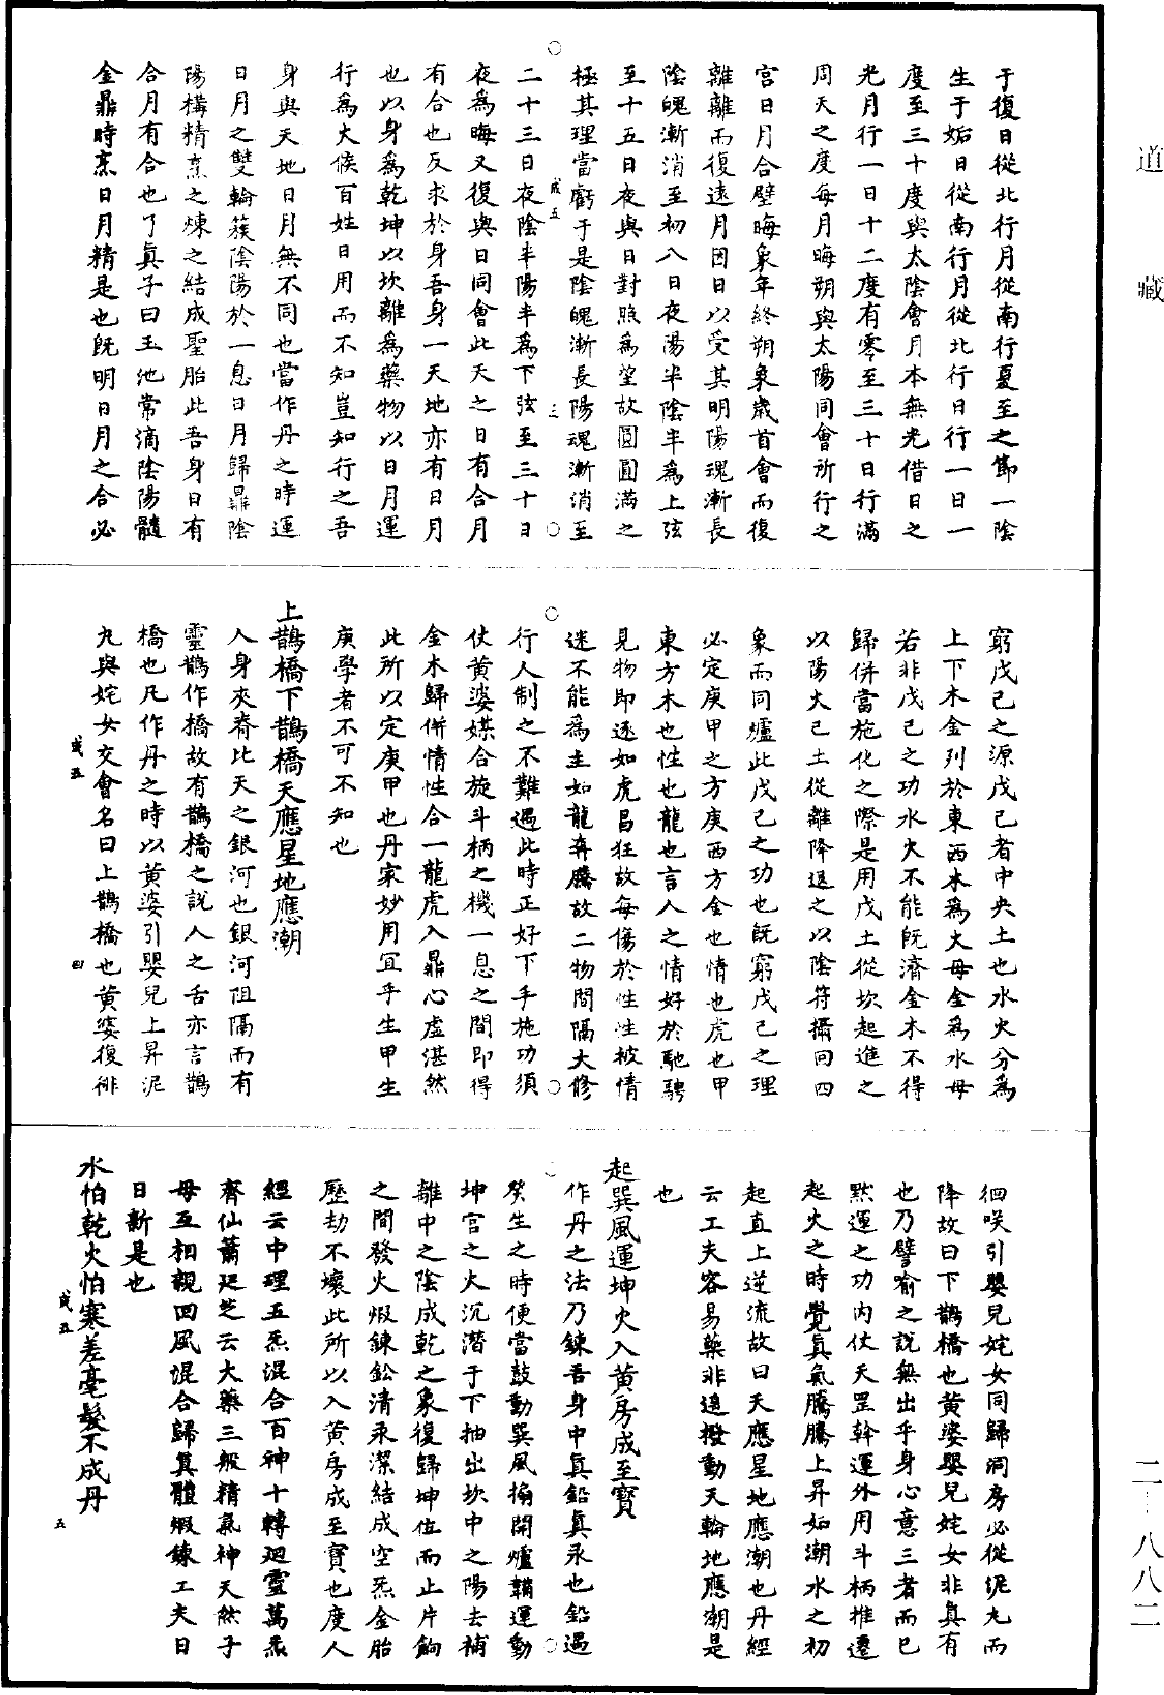 道藏
于復日從北行月從南行夏至之節一陰
生于姤日從南行月從北行日行一日一
度至三十度與太陰會月本無光借日之
光月行一日十二度有零至三十日行滿
周天之度每月晦朔與太陽同會所行之
宮日月合璧晦象年終朔象歲首會而復
離離而復遠月因日以受其明陽魂漸長
陰魄漸消至初八日夜陽半陰半為上弦
至十五日夜與日對照為望故圓圓滿之
極其理當虧于是陰魄漸長陽魂漸消至
○ 咸五 三 ○
二十三日夜陰半陽半為下弦至三十日
夜為晦又復與日同會此天之日有合月
有合也反求於身吾身一天地亦有日月
也以身為乾坤以坎離為藥物以日月運
行為大候百姓日用而不知豈知行之吾
身與天地日月無不同也當作丹之時運
日月之雙輪簇陰陽於一息日月歸鼎陰
陽構精烹之煉之結成聖胎此吾身日有
合月有合也了真子曰玉池常滴陰陽髓
金鼎時烹日月精是也既明日月之合必
窮戊己之源戊己者中央土也水火分為
上下木金列於東西木為火母金為水母
若非戊己之功水火不能既濟金木不得
歸併當施化之際是用戊土從坎起進之
以陽火己土從離降退之以陰符攝回四
象而同爐此戊己之功也既窮戊己之理
必定庚甲之方庚西方金也情也虎也甲
東方木也性也龍也言人之情好於馳騁
見物即逐如虎昌狂故每傷於性性被情
迷不能為主如龍奔騰故二物間隔大修
○ ○
行人制之不難遇此時正好下手施功須
仗黃婆媒合旋斗柄之機一息之間即得
金木歸併情性合一龍虎入鼎心虛湛然
此所以定庚甲也丹家妙用宜乎生甲生
庚學者不可不知也
上鵲橋下鵲橋天應星地應潮
人身夾脊比天之銀河也銀河阻隔而有
靈鵲作橋故有鵲橋之說人之舌亦言鵲
橋也凡作丹之時以黃婆引嬰兒上昇泥
丸與姹女交會名曰上鵲橋也黃婆復徘
咸五 四
徊咲引嬰兒姹女同歸洞房必從泥丸而
降故曰下鵲橋也黃婆嬰兒姹女非真有
也乃譬喻之說無出乎身心意三者而已
默運之功內仗天罡斡運外用斗柄推遷
起火之時覺真氣騰騰上昇如潮水之初
起直上逆流故曰天應星地應潮也丹經
云工夫容易藥非遙撥動天輪地應潮是
也
起巽風運坤火入黃房成至寶
作丹之法乃鍊吾身中真鉛真汞也鉛遇
○ ○
癸生之時便當鼓動巽風搧開爐鞴運動
坤宮之火沉潛于下抽出坎中之陽去補
離中之陰成乾之象復歸坤位而止片餉
之間發火煅鍊鉛清汞潔結成空炁金胎
歷劫不壞此所以入黃房成至寶也度人
經云中理五炁混合百神十轉迴靈萬炁
齊仙蕭廷芝云大藥三般精氣神天然子
母互相親回風混合歸真體煅鍊工夫日
日新是也
水怕乾火怕寒差毫髮不成丹
咸五 五
二—八八二